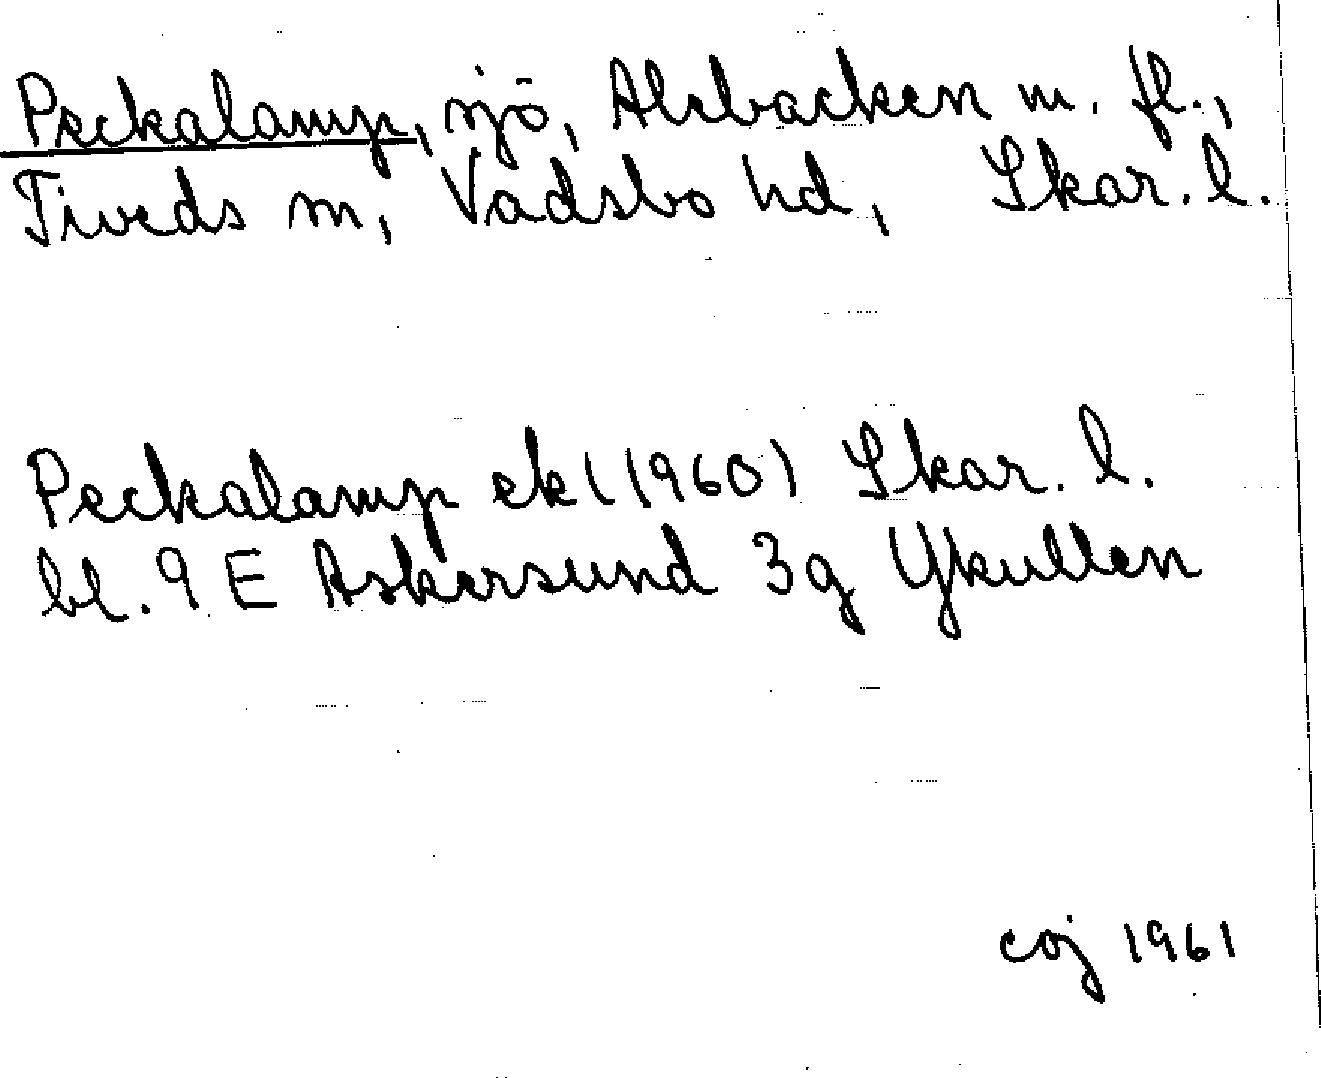 Peckalamp, sjö, Alebacken m. fl.,
Tiveds sn, Vadsbo hd, Skar. l.
Peckalamp ek (1960) Skar. l.
bl. 9 E Askersund 3g Ykullen
coj 1961